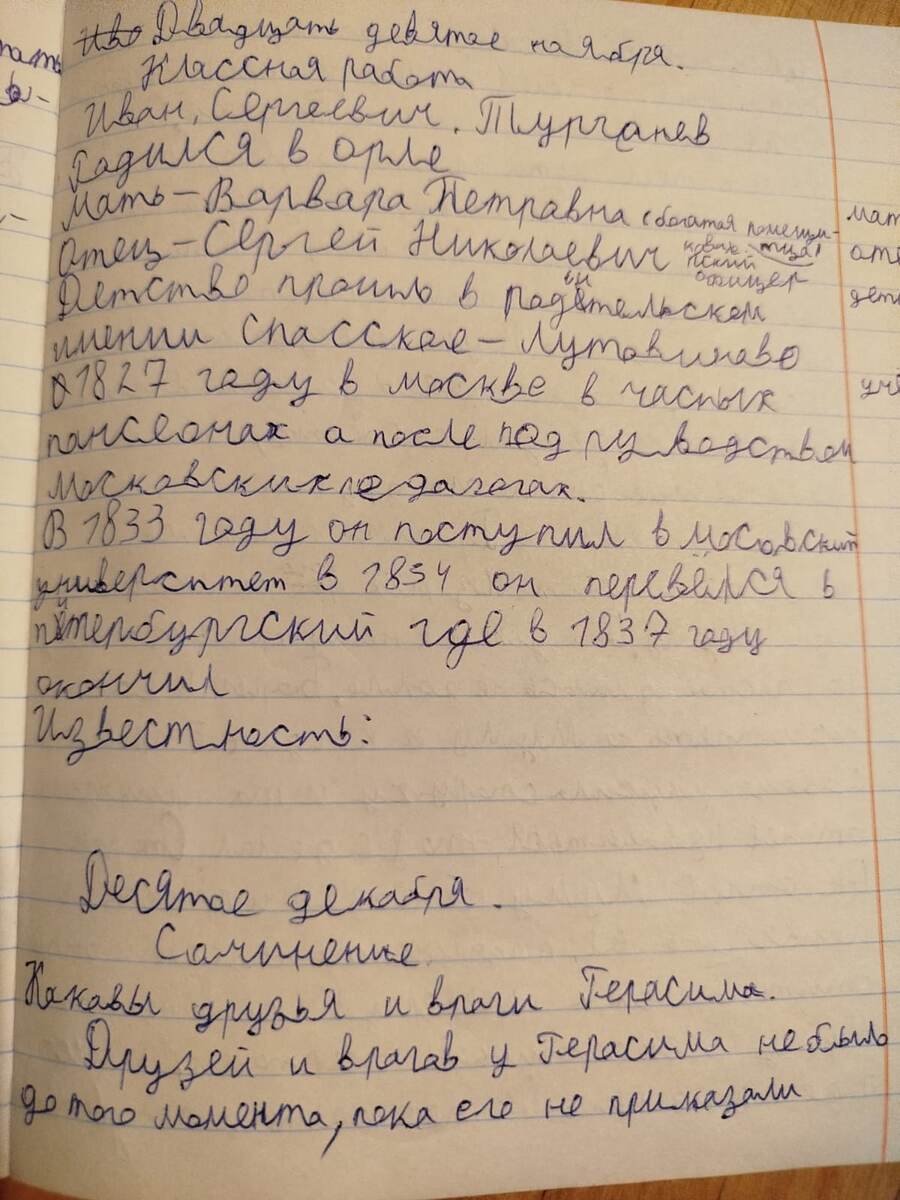 Двадцать девятое ноября.
Классная работа
Иван, Сергеевич. Тургенев
Радился в орле
Мать – Варвара Петравна (богатая помещи-
тица)
Отец – Сергей Николаевич
офицер
Детство прошло в радительском
имении Спасское – Лутавинаво
1827 году в москве в часных
пансеонах а после под руводством
московских педагогах.
В 1833 году он поступил в мосовский
универститет в 1834 он перевёлся в
питербургский где в 1837 году
окончил
Известность:
Десятое декабря.
Сочинение.
Каковы друзья и враги Герасима.
Друзей и врагав у Герасима небыло
до того момента, пока его не приказали
мат
оте
дет
уч